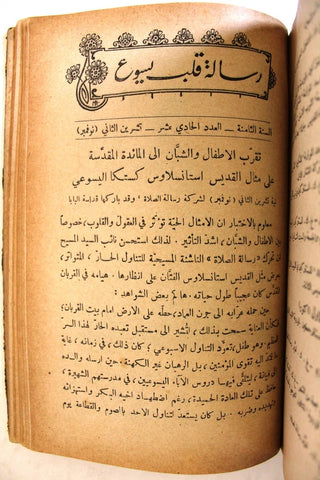 رسالة قلب يسوع
السنة الثامنة — العدد الحادي عشر — تشرين الثاني (نوفمبر)
تقرّب الاطفال والشبَّان الى المائدة المقدَّسة
على مثال القديس استانسلاوس كستكا اليسوعي
نية تشرين الثاني (نوفمبر) لشركة رسالة الصلاة وقد باركها قداسة البابا
معلوم بالاختبار ان الامثال الحيَّة تؤثر في العقول والقلوب، خصوصاً
بين الاطفال والشبَّان ، اشدَّ التأثير . لذلك استحسن نائب السيد المسيح
ان تحرّك «رسالة الصلاة» الناشئة المسيحيَّة لتناول الخبز الحيّ ،
بعرض مثل القديس استانسلاوس الفتَّان على انظارها . هيامه في القربان
المقدَّس كان عجيباً طول حياته . هالمَّ بعض الشواهد :
حين حمله عرَّابه الى جرن العماد ، حطَّه على الارض امام بيت القربان .
العناية سمحت بذلك ، لتشير الى مستقبل تعبده الحارّ لهذا السرّ
العظيم . وهو فتى ، تعوَّد التناول الاسبوعي ؛ كان ذلك ، في زمانه ، غاية
تصل اليه تقوى المؤمنين ، بل الرهبان غير الكهنة . حين ارسله والده
، ليتلقَّى فيها دروس الآباء اليسوعيين ، في مدرستهم الشهيرة ،
على تلك العادة الحميدة ، رغم اضطهاد اخيه البكر واستهزائه
وتهديده وضربه . بل كان يستعدّ لتناول الاحد بالصوم والقطاعة يوم